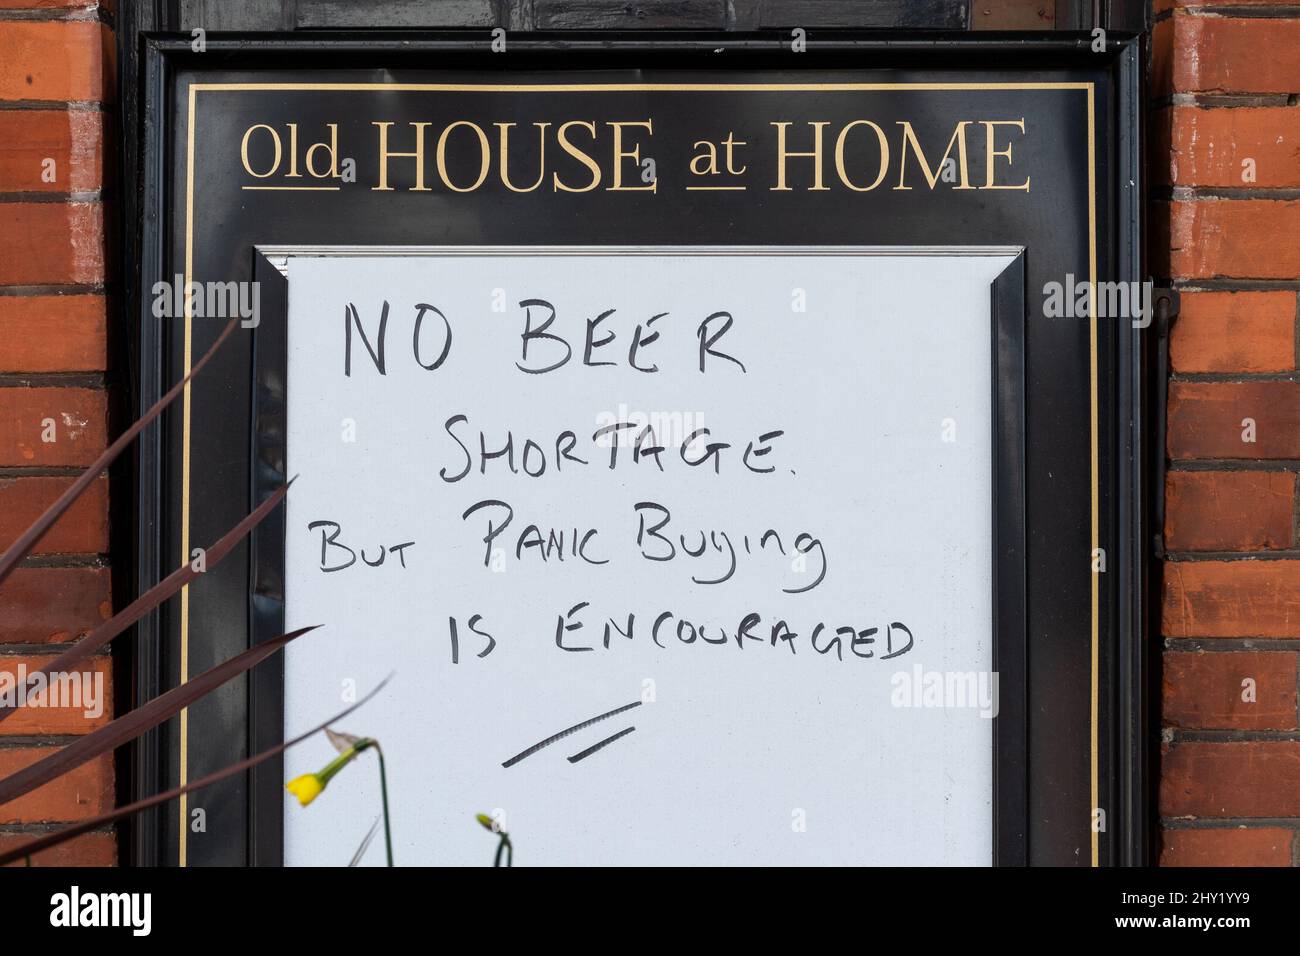 Old HOUSE at HOME
NO BEER
SHORTAGE.
BUT PANIC Buying
IS ENCOURAGED
alamy
alamy
Image ID: 2HY1YY9
www.alamy.com